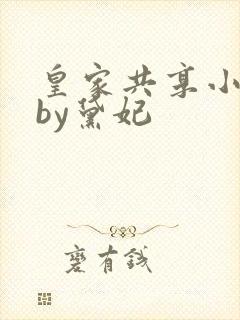 皇家共享小
by黛妃
蹇有钱